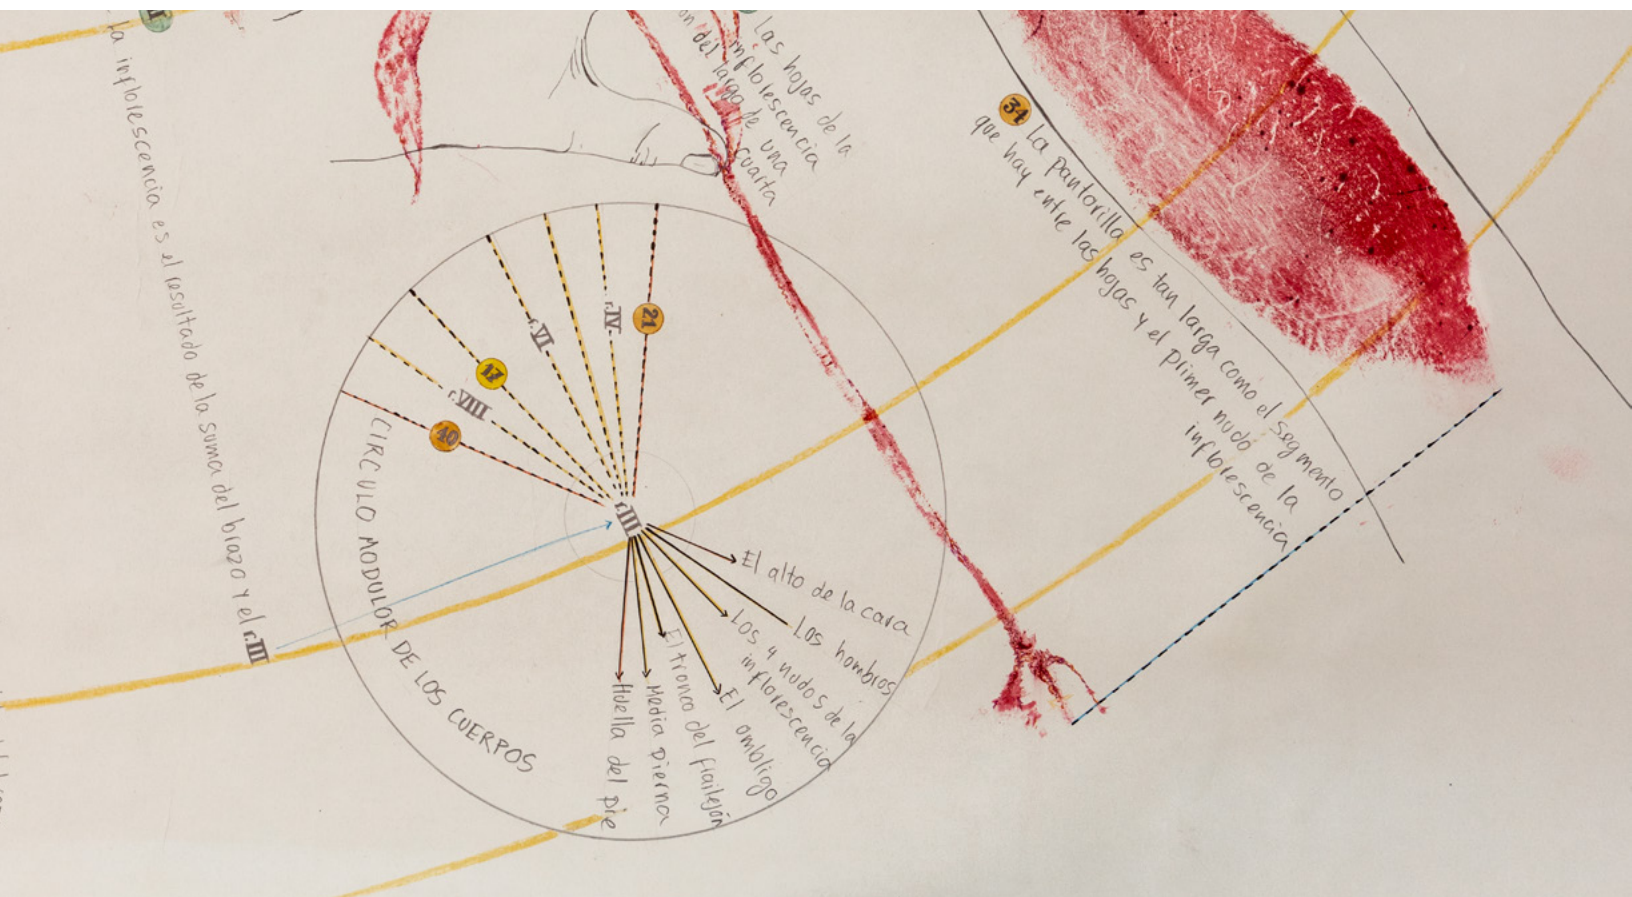 la inflorescencia es el resultado de la suma del brazo y el r.III
Las hojas de la
inflorescencia
del largo de una
cuarta
34 La pantorilla es tan larga como el segmento
que hay entre las hojas y el primer nudo de la
inflorescencia
21
r.IV
r.VI
17
r.VIII
40
r.III
CIRCULO MODULOR DE LOS CUERPOS
El alto de la cara
Los hombros
Los 4 nudos de la
inflorescencia
El ombligo
El tronco del frailejón
Media pierna
Huella del pie